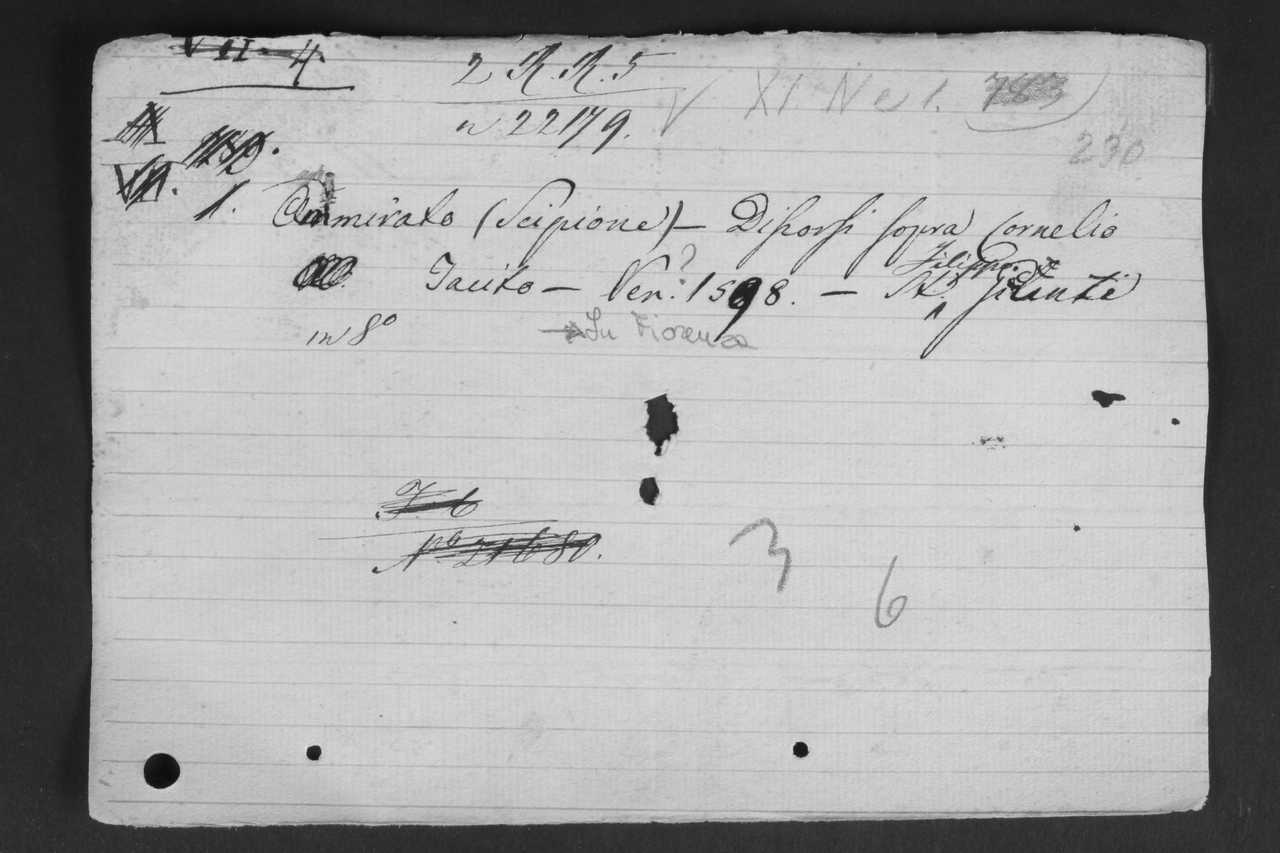 VII-4
2 R. R. 5
n 22179.
√ XI Ne 1. 783
230
VII.
1. Ammirato (Scipione) – Discorsi sopra Cornelio
Tacito – Ven.? 1598. – St. Filippo Giunti
in 8º
In Fiorenza
F. 6
Nº 21680.
3
6